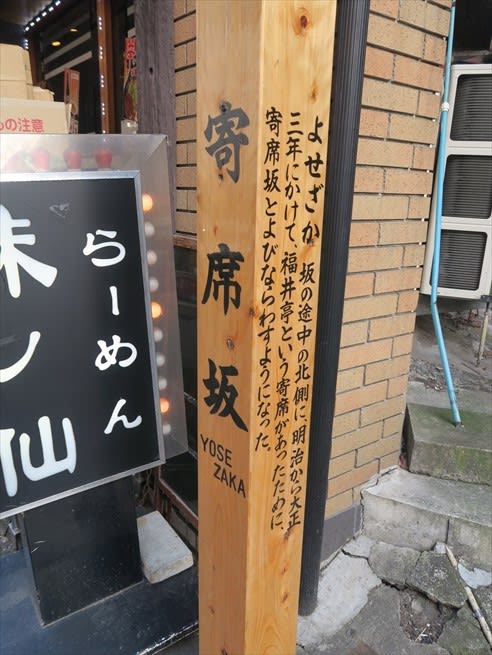 寄席坂
YOSE
ZAKA
よせざか 坂の途中の北側に、明治から大正
三年にかけて、福井亭という寄席があったために、
寄席坂とよびならわすようになった。
らーめん
味ノ仙
の注意